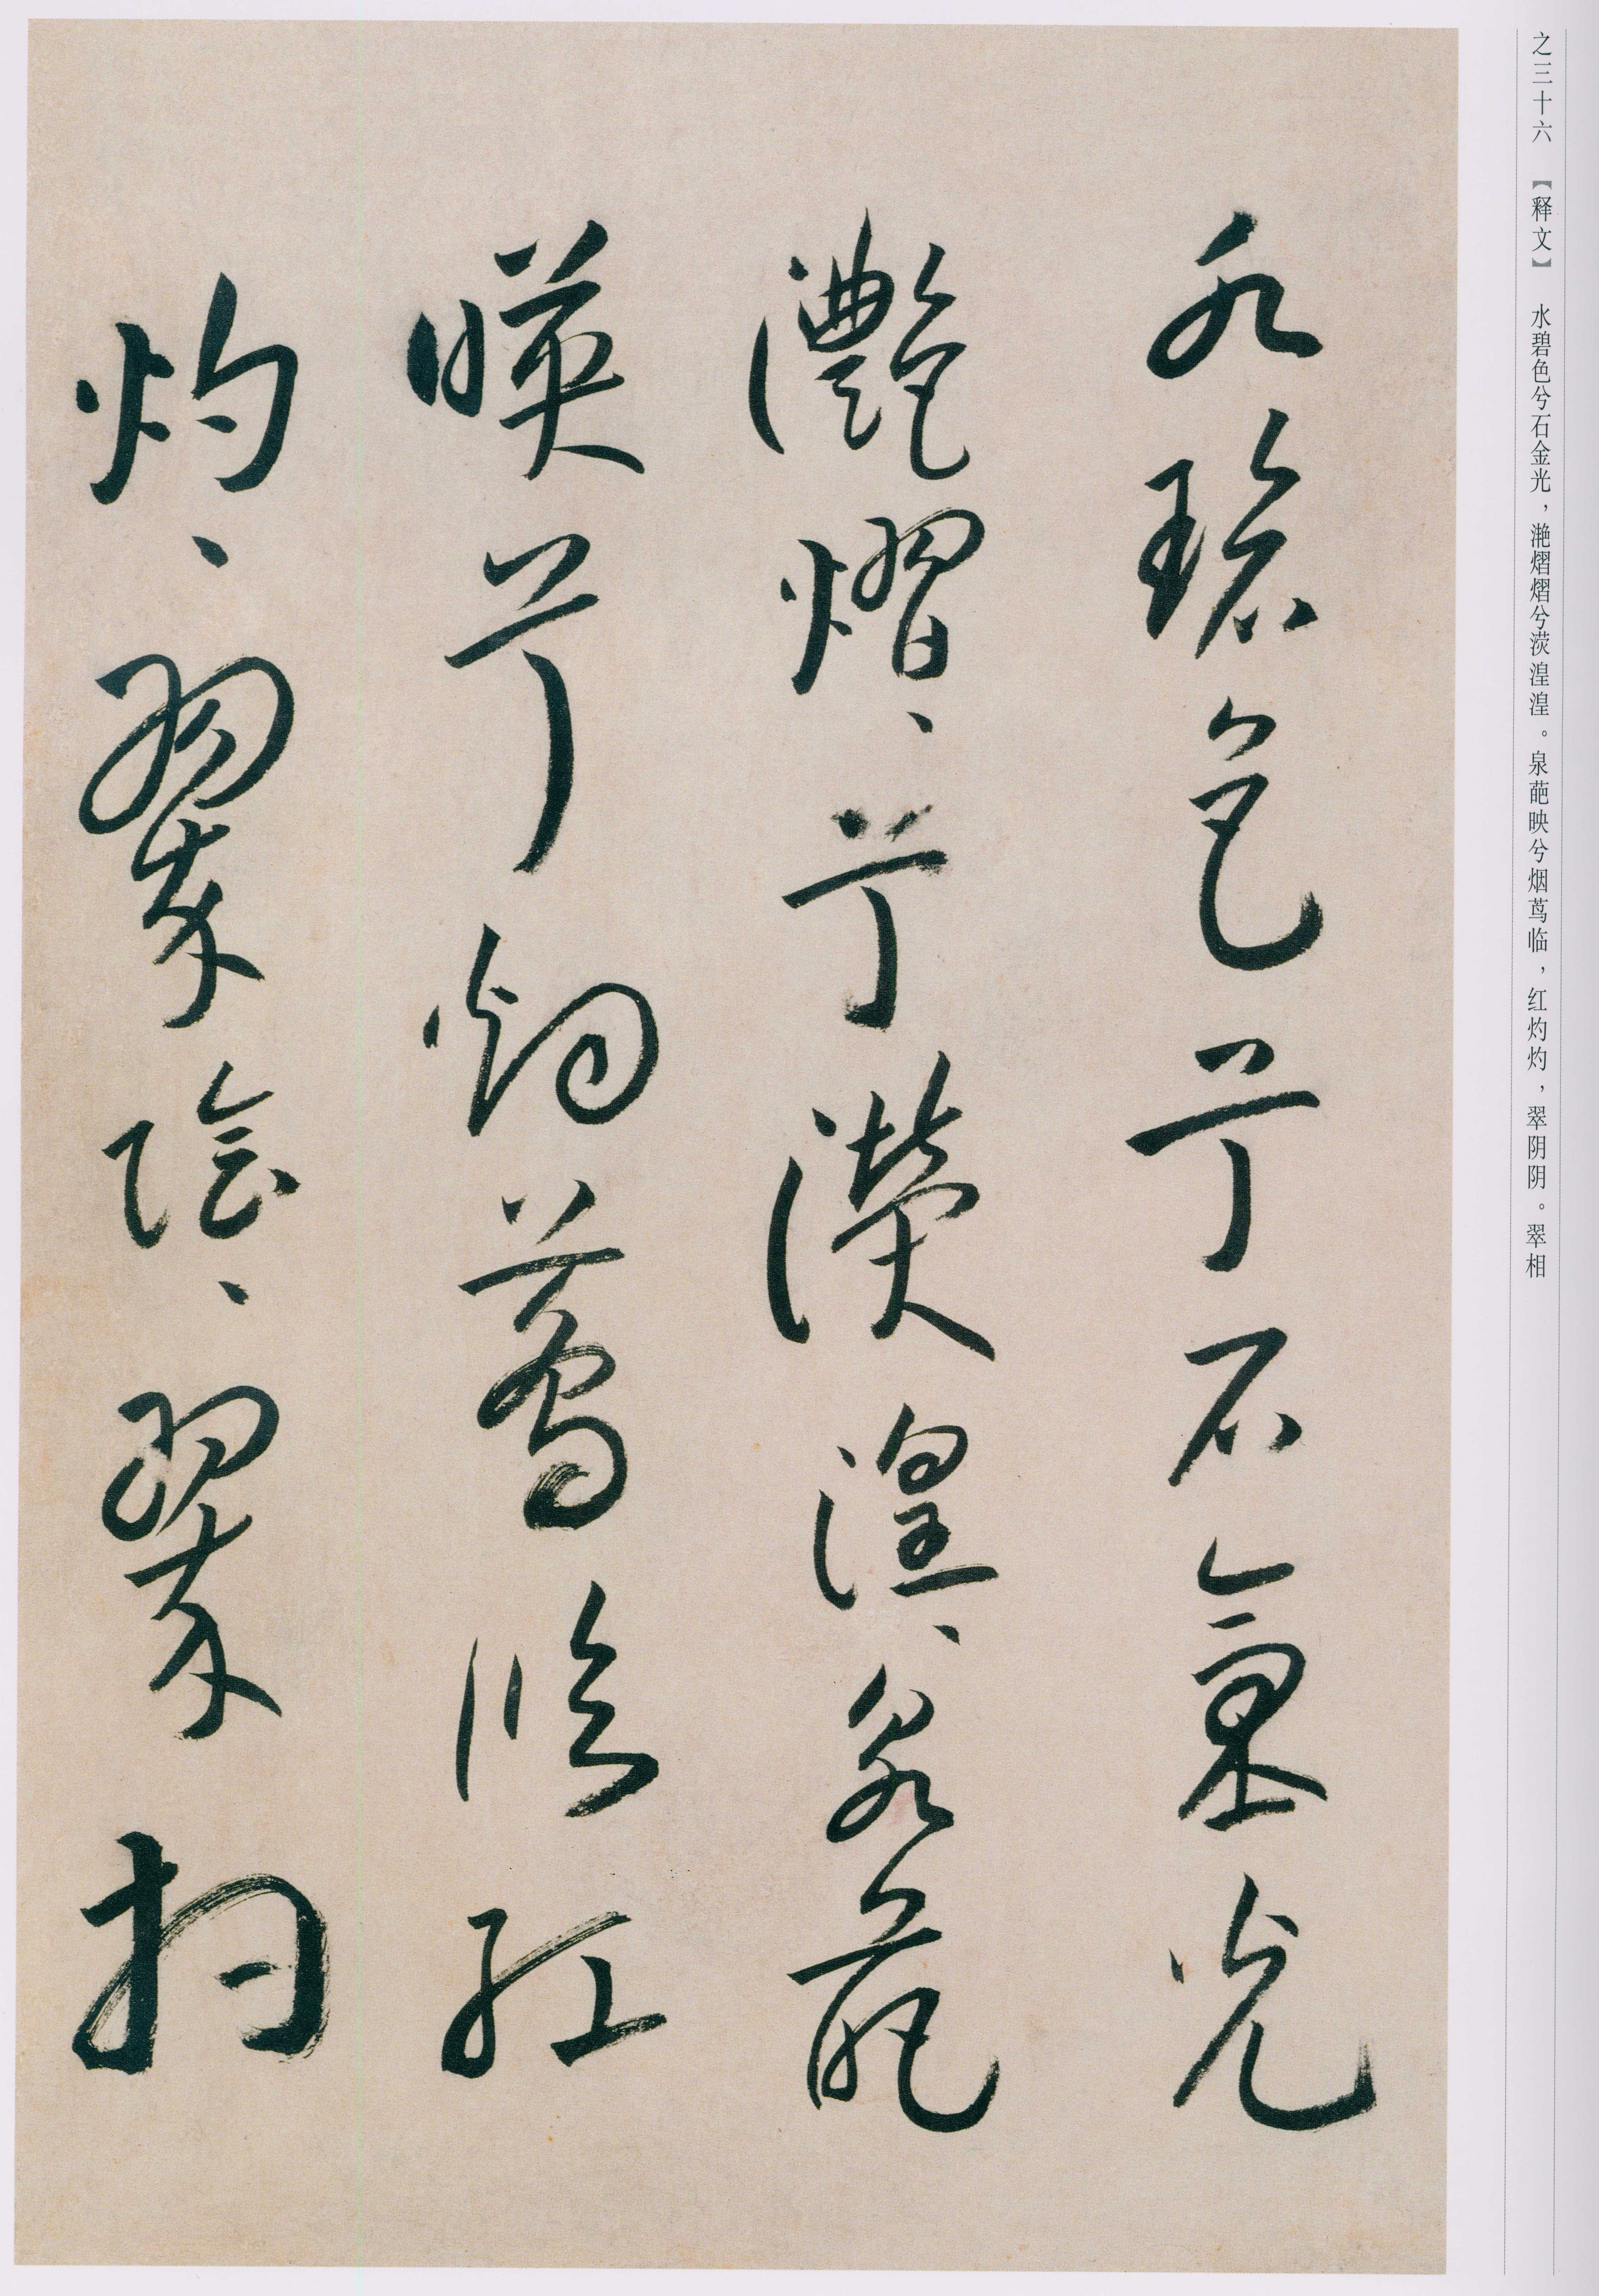 之三十六 【释文】 水碧色兮石金光，滟熠熠兮荧湟湟。泉葩映兮烟茑临，红灼灼，翠阴阴。翠相
水碧色兮石氣光
灧熠、兮濙湟、泉葩
暎兮烟蔦临红
灼、翠陰、翠相